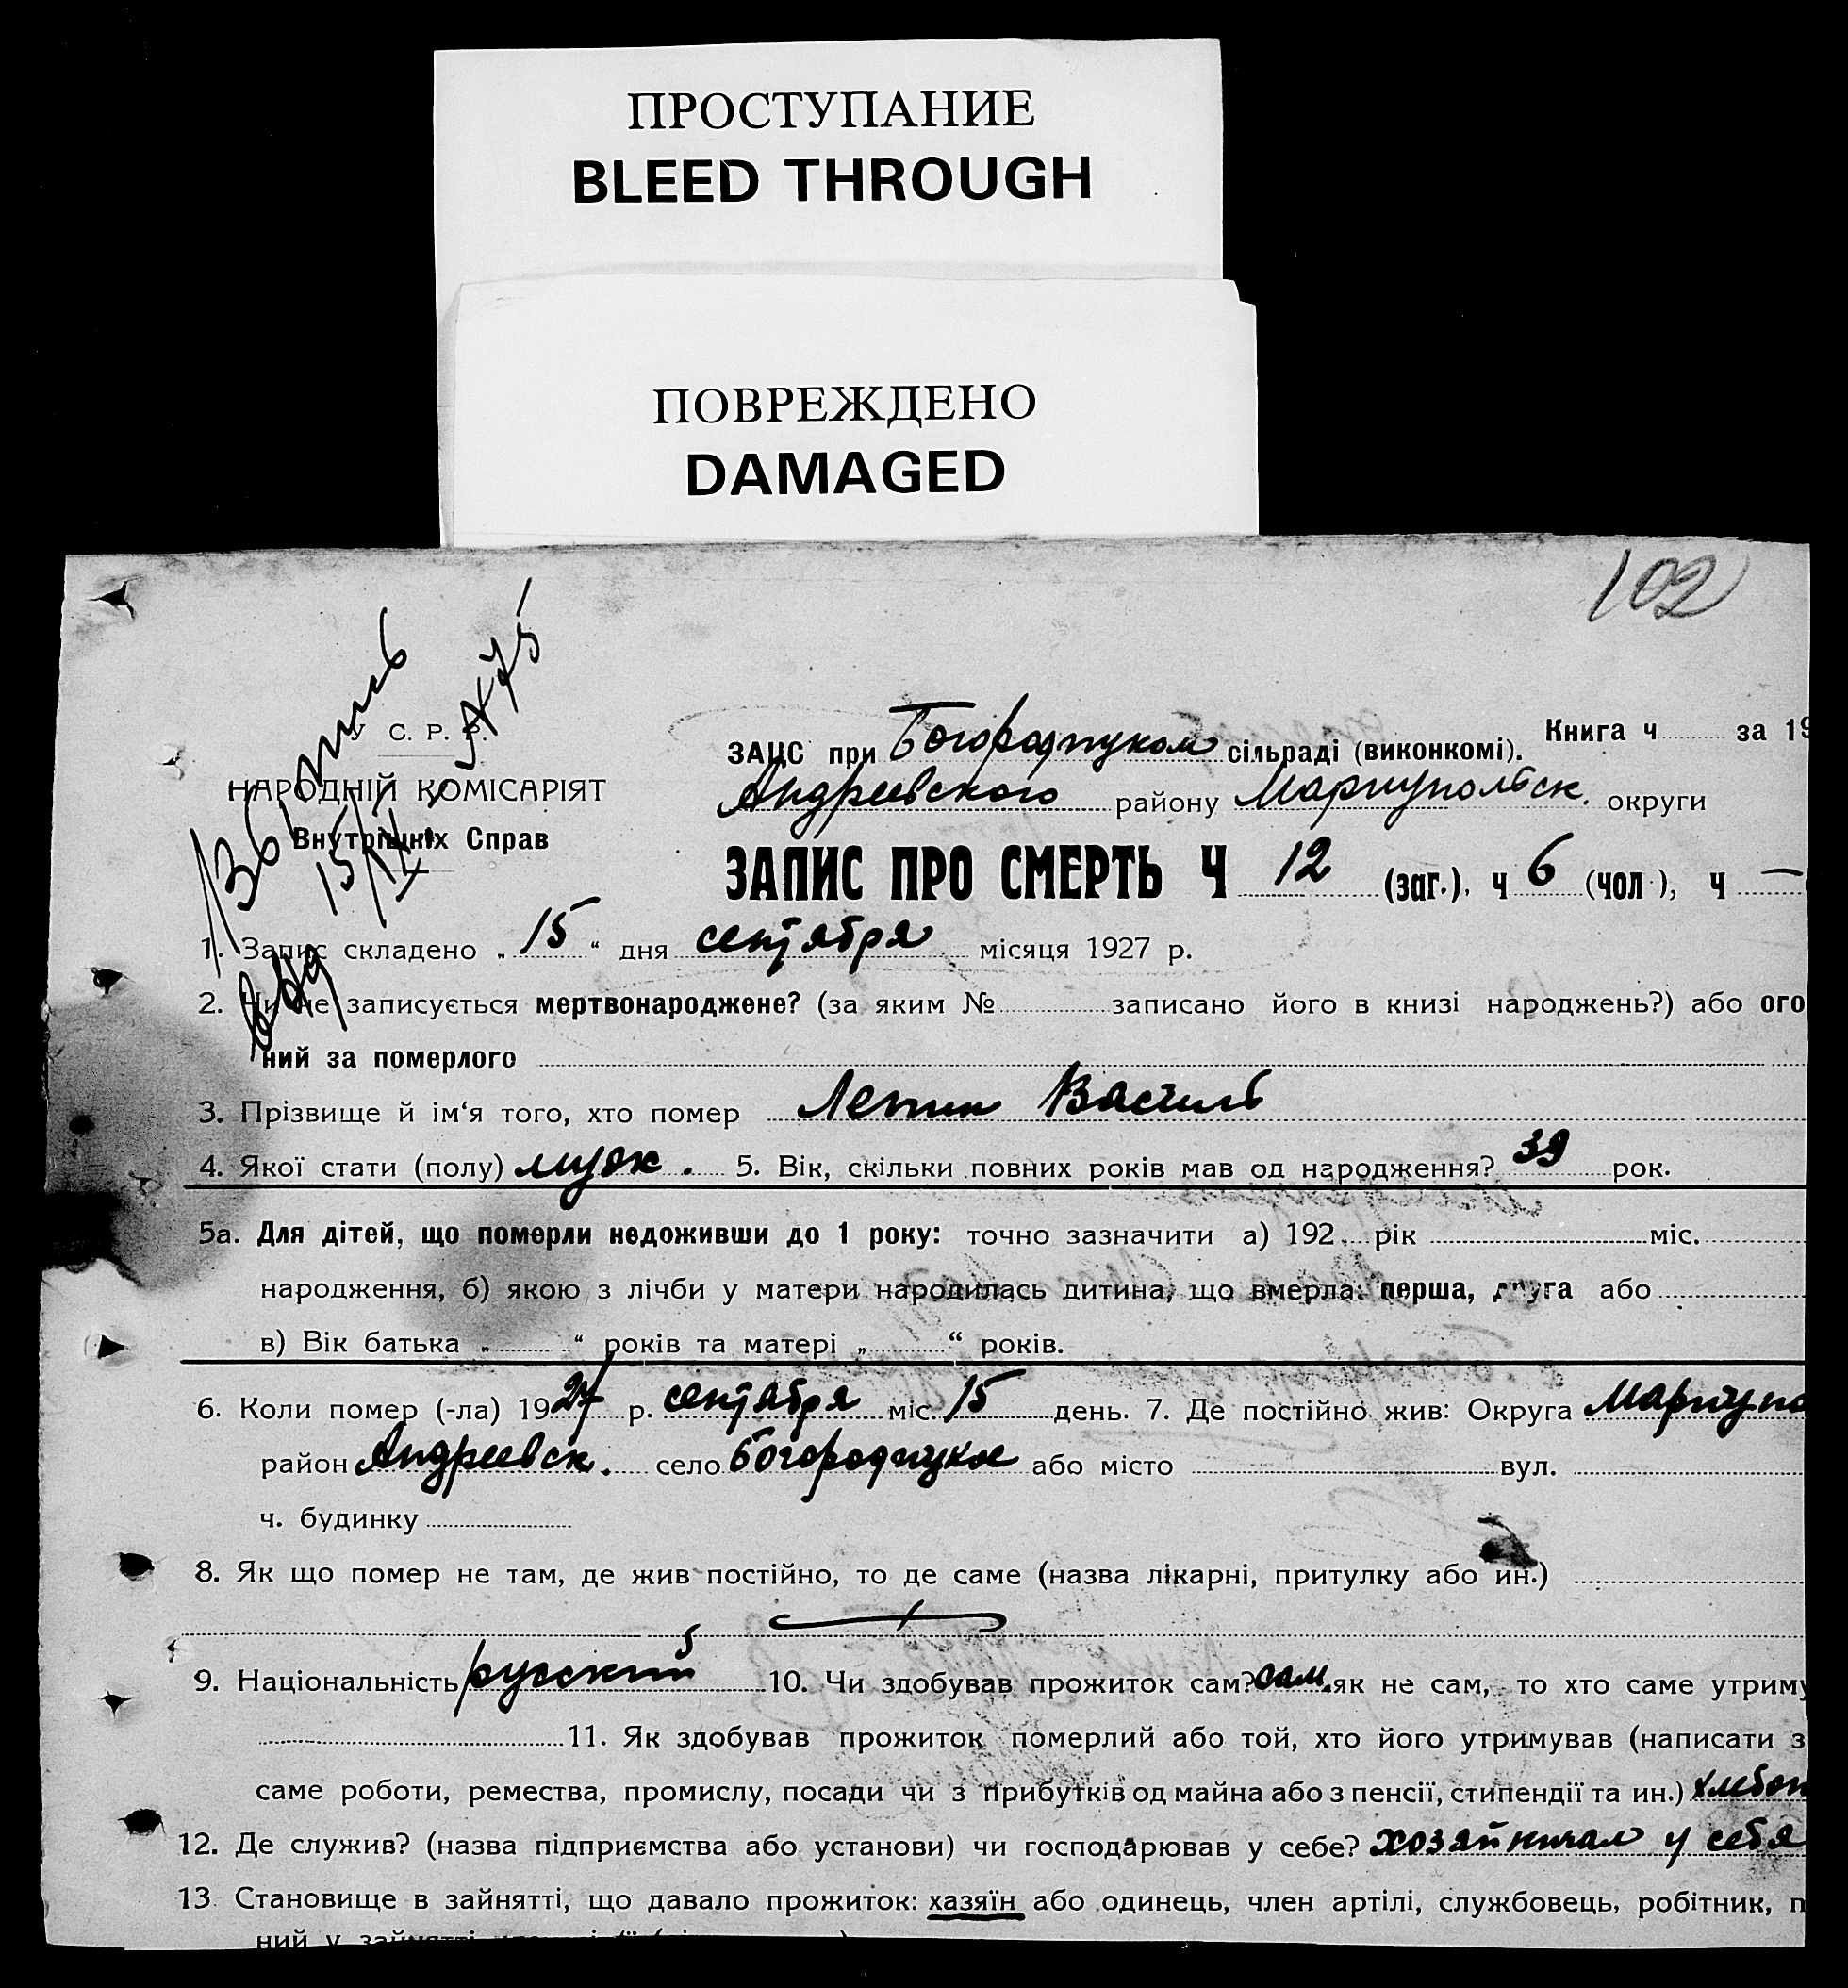 ПРОСТУПАНИЕ
BLEED THROUGH
ПОВРЕЖДЕНО
DAMAGED
102
У С. Р. Р.
НАРОДНІЙ КОМІСАРІЯТ
Внутрішніх Справ
15/IX
Книга ч за 19
ЗАЦС при Богородицком сільраді (виконкомі).
Андреевского району Мариупольск. округи
ЗАПИС ПРО СМЕРТЬ Ч 12 (заг.), ч 6 (чол.), ч —
1. Запис складено „ 15 “ дня сентября місяця 1927 р.
2. Чи не записується мертвонароджене? (за яким № записано його в книзі народжень?) або ого
ний за померлого
3. Прізвище й ім‘я того, хто помер Лепин Василь
4. Якої стати (полу) мужс. 5. Вік, скільки повних років мав од народження? 39 рок.
5а. Для дітей, що померли недоживши до 1 року: точно зазначити а) 192 рік міс.
народження, б) якою з лічби у матери народилась дитина, що вмерла: перша, друга або
в) Вік батька „ “ років та матері „ “ років.
6. Коли помер (-ла) 1927 р. сентября міс. 15 день. 7. Де постійно жив: Округа Мариупо
район Андреевск. село Богородицкое або місто вул.
ч. будинку
8. Як що помер не там, де жив постійно, то де саме (назва лікарні, притулку або ин.)
9. Національність русский 10. Чи здобував прожиток сам? сам. як не сам, то хто саме утриму
11. Як здобував прожиток померлий або той, хто його утримував (написати з
саме роботи, ремества, промислу, посади чи з прибутків од майна або з пенсії, стипендії та ин.) хлебоп
12. Де служив? (назва підприємства або установи) чи господарював у себе? хозяйничал у себя
13 Становище в зайнятті, що давало прожиток: хазяїн або одинець, член артілі, службовець, робітник, п